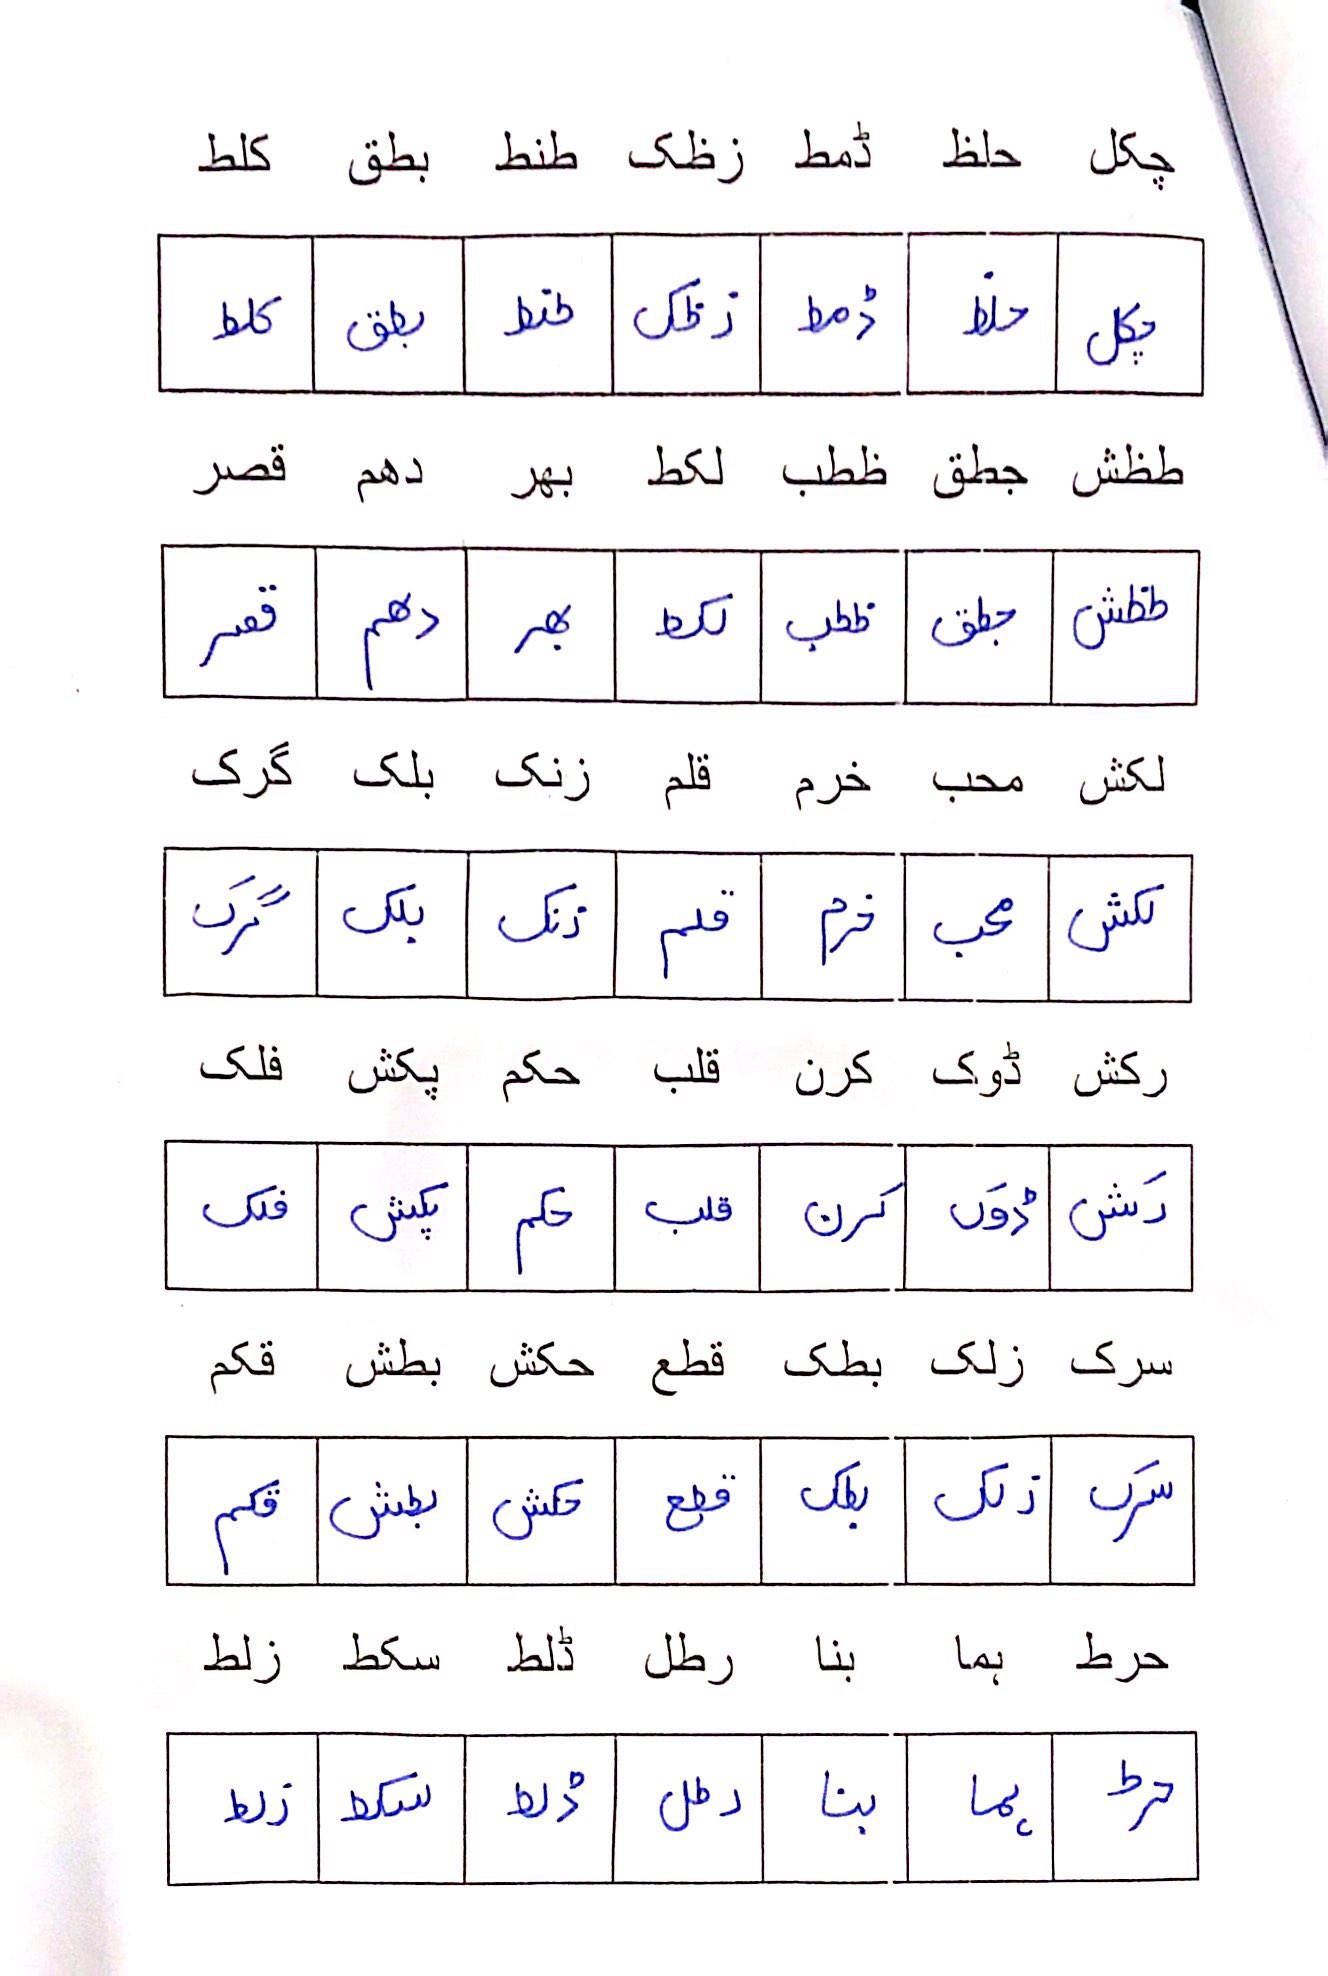 چکل حلظ ڈمط زظک طنط بطق کلط
چکل حلظ ڈمط زظک طنط بطق کلط
طظش جطق ظطب لکط بہر دھم قصر
طظش جطق ظطب لکط بھر دھم قصر
لکش محب خرم قلم زنک بلک گرک
لکش محب خرم قلم زنک بلک گرک
رکش ڈوک کرن قلب حکم پکش فلک
رکش ڈوک کرن قلب حکم پکش فلک
سرک زلک بطک قطع حکش بطش قکم
سرک زلک بطک قطع حکش بطش قکم
حرط ہما بنا رطل ڈلط سکط زلط
حرط ہما بنا رطل ڈلط سکط زلط